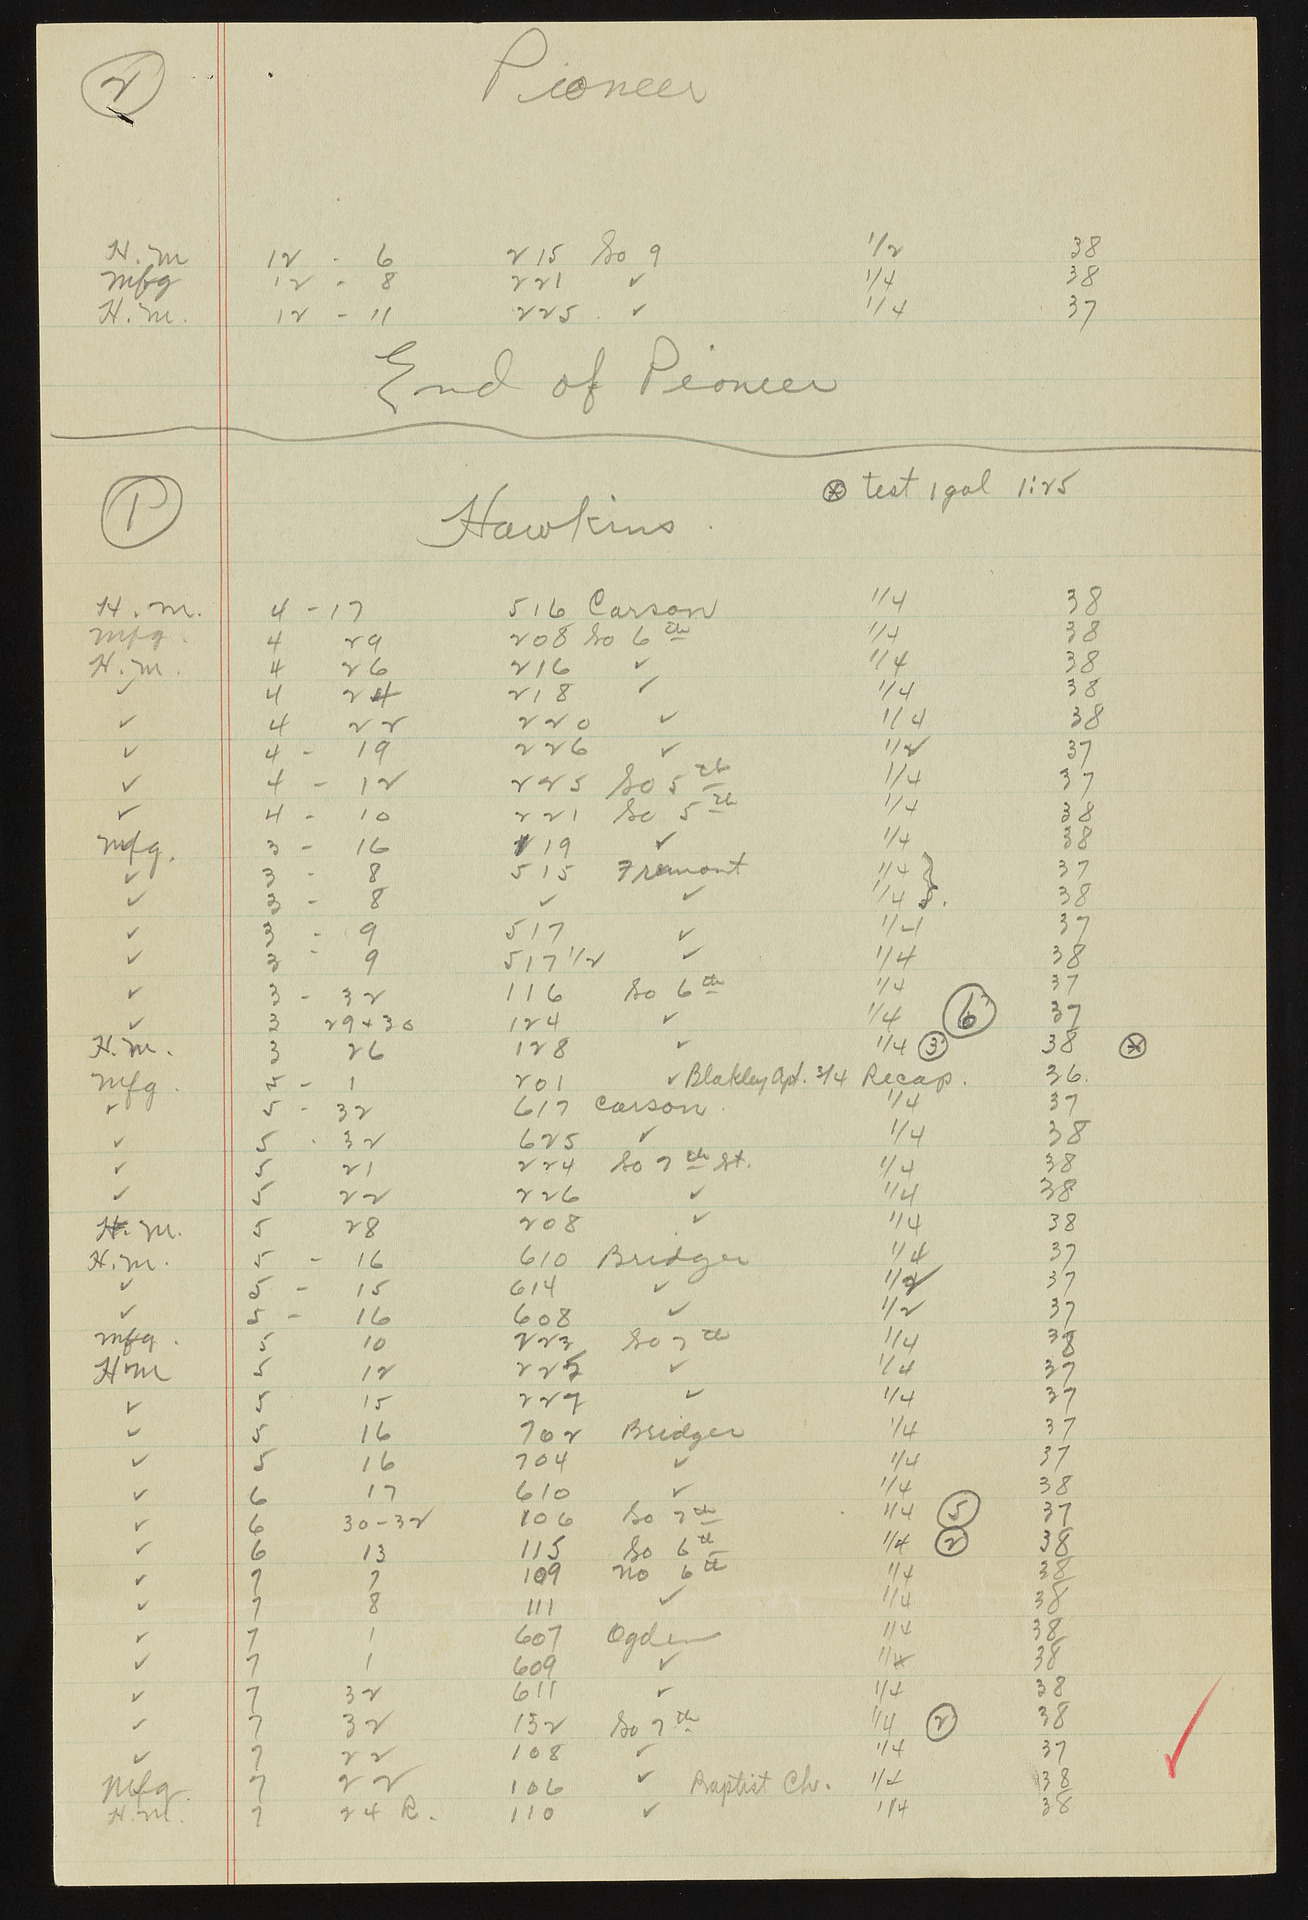 2
Pioneer
H. M 12 - 6 215 So 9 1/2 38
Mfg 12 - 8 221 ✓ 1/4 38
H. M. 12 - 11 225 ✓ 1/4 37
End of Pioneer
⊛ test 1 gal 1:25
P
Hawkins.
H. M. 4 - 17 516 Carson 1/4 38
Mfg. 4 29 208 So 6th 1/4 38
H. M. 4 26 216 ✓ 1/4 38
✓ 4 24 218 ✓ 1/4 38
✓ 4 22 220 ✓ 1/4 38
✓ 4 - 19 226 ✓ 1/2 37
✓ 4 - 12 225 So 5th 1/4 37
✓ 4 - 10 221 So 5th 1/4 38
Mfg. 3 - 16 219 ✓ 1/4 38
✓ 3 - 8 515 Fremont 1/4 } 37
✓ 3 - 8 ✓ ✓ 1/4 38
✓ 3 - 9 517 ✓ 1/4 37
✓ 3 - 9 517 1/2 ✓ 1/4 38
✓ 3 - 32 116 So 6th 1/4 37
✓ 3 29+30 124 ✓ 1/4 6 37
H. M. 3 26 128 ✓ 1/4 3 38 ⊛
Mfg. 5 - 1 201 ✓ Blakley Apt. 3/4 Recap. 36.
✓ 5 - 32 617 Carson. 1/4 37
✓ 5 - 32 625 ✓ 1/4 38
✓ 5 21 224 So 7th St. 1/4 38
✓ 5 22 226 ✓ 1/4 38
H. M. 5 28 208 ✓ 1/4 38
H. M. 5 - 16 610 Bridger 1/4 37
✓ 5 - 15 614 ✓ 1/2 37
✓ 5 - 16 608 ✓ 1/2 37
Mfg. 5 10 223 So 7th 1/4 38
H M 5 12 225 ✓ 1/4 37
✓ 5 15 227 ✓ 1/4 37
✓ 5 16 702 Bridger 1/4 37
✓ 5 16 704 ✓ 1/4 37
✓ 6 17 610 ✓ 1/4 38
✓ 6 30-32 106 So 7th 1/4 5 37
✓ 6 13 115 So 6th 1/4 2 38
✓ 7 7 109 No 6th 1/4 38
✓ 7 8 111 ✓ 1/4 38
✓ 7 1 607 Ogden 1/4 38
✓ 7 1 609 ✓ 1/4 38
✓ 7 32 611 ✓ 1/4 38
✓ 7 32 132 So 7th 1/4 2 38
✓ 7 22 108 ✓ 1/4 37
Mfg. 7 22 106 ✓ Baptist Ch. 1/4 38
H. M. 7 24 R. 110 ✓ 1/4 38